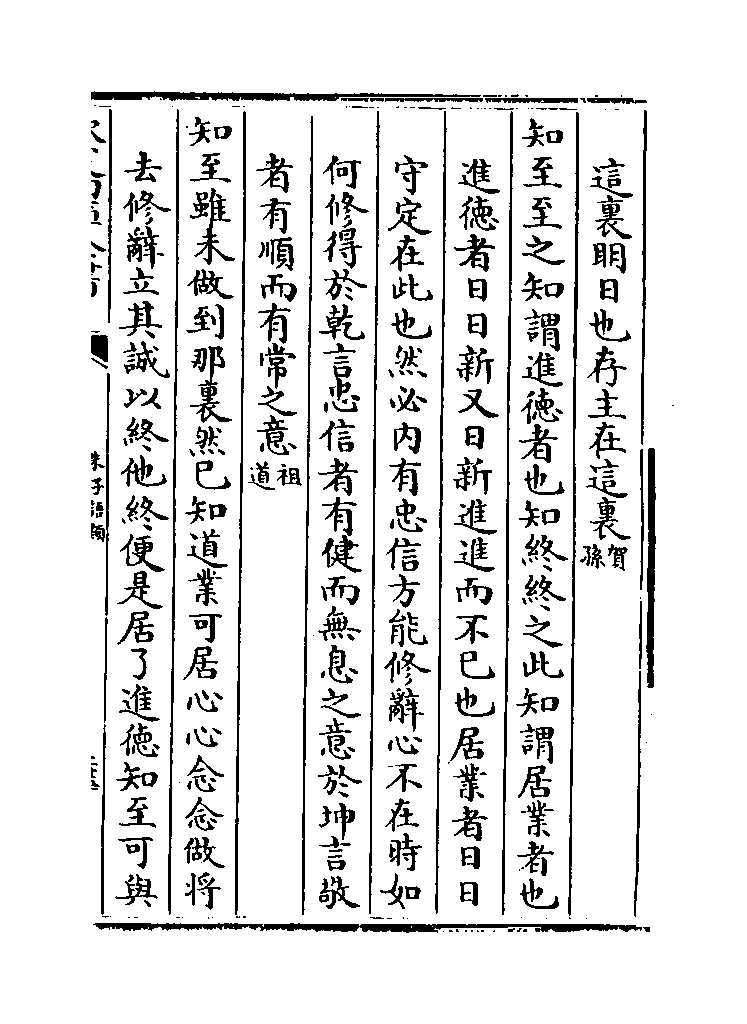 這裏明日也存主在這裏賀孫
知至至之知謂進徳者也知終終之此知謂居業者也
進徳者日日新又日新進進而不已也居業者日日
守定在此也然必内有忠信方能修辭心不在時如
何修得於乾言忠信者有健而無息之意於坤言敬
者有順而有常之意祖道
知至雖未做到那裏然已知道業可居心心念念做将
去修辭立其誠以終他終便是居了進徳知至可與
朱子語類